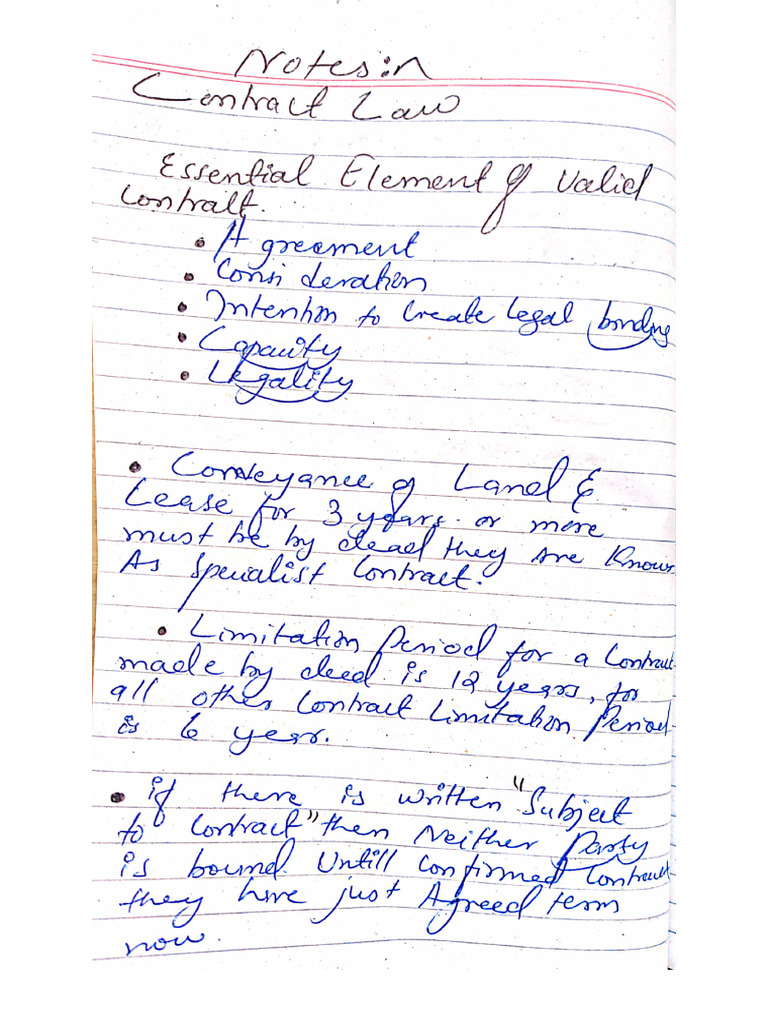 Notes:n
Contract Law
Essential Element of Valid
Contralt.
• Agreement
• Consi deration
• Intention to Create Legal binding
• Capacity
• Legality
• Conveyance of Land &
Lease for 3 years. or more
must be by dead they are Known
As Specialist Contract.
• Limitation Period for a Contract
made by deed is 12 years, for
all other Contract Limitation Period
is 6 year.
• if there is written "Subject
to Contract" then Neither Party
is bound. Untill Confirmed Contract
they have just Agreed term
now.